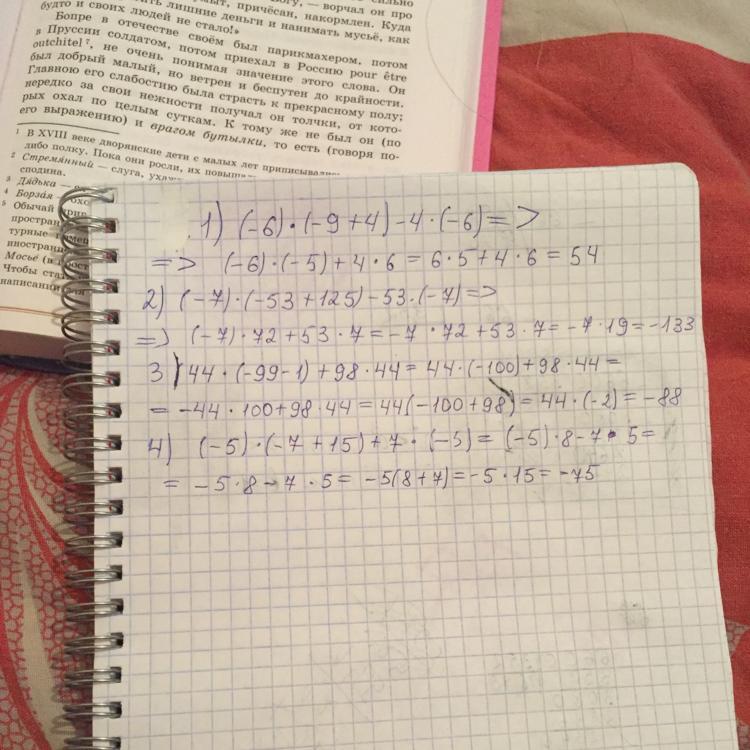 будто и своих людей не стало!»
Бопре в отечестве своём был парикмахером, потом
в Пруссии солдатом, потом приехал в Россию pour être
outchitel⁷, не очень понимая значение этого слова. Он
был добрый малый, но ветрен и беспутен до крайности.
Главною его слабостью была страсть к прекрасному полу;
нередко за свои нежности получал он толчки, от кото-
рых охал по целым суткам. К тому же не был он (по
его выражению) и врагом бутылки, то есть (говоря по-
¹ В XVIII веке дворянские дети с малых лет
либо полку. Пока они росли, их
² Стремянный — слуга,
сподина.
³ Дядька —
⁴ Борзая —
⁵ Обычай
турные
Мосье
Чтобы
1) (-6)·(-9+4)-4·(-6)=>
=> (-6)·(-5)+4·6=6·5+4·6=54
2) (-7)·(-53+125)-53·(-7)=>
=> (-7)·72+53·7=-7·72+53·7=-7·19=-133
3) 44·(-99-1)+98·44=44·(-100)+98·44=
=-44·100+98·44=44(-100+98)=44·(-2)=-88
4) (-5)·(-7+15)+7·(-5)=(-5)·8-7·5=
=-5·8-7·5=-5(8+7)=-5·15=-75